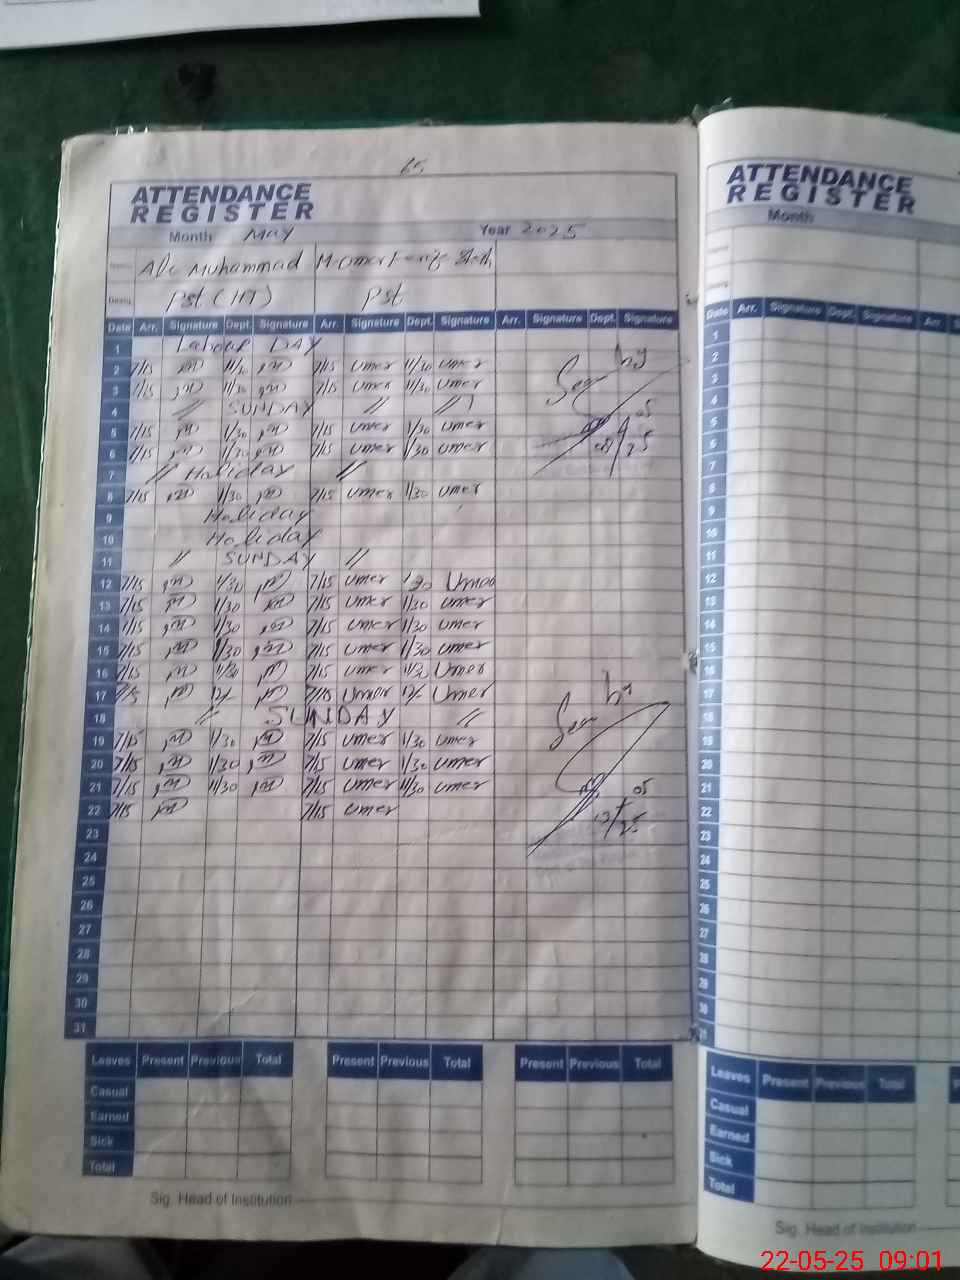 65
ATTENDANCE
REGISTER
Month May Year 2025
Ali Muhammad M. Umer
Desig. Pst (HT) Pst
Date Arr. Signature Dept. Signature Arr. Signature Dept. Signature Arr. Signature Dept. Signature
1 Labour DAY
2 7/15 11/30 7/15 umer 11/30 umer
3 7/15 11/30 7/15 umer 11/30 umer
4 // SUNDAY // //
5 7/15 1/30 7/15 umer 1/30 umer
6 7/15 1/30 7/15 umer 1/30 umer
7 // Holiday //
8 7/15 1/30 7/15 umer 1/30 umer
9 Holiday
10 Holiday
11 // SUNDAY //
12 7/15 1/30 7/15 umer 1/30 Umer
13 7/15 1/30 7/15 umer 1/30 umer
14 7/15 1/30 7/15 umer 1/30 umer
15 7/15 1/30 7/15 umer 1/30 umer
16 7/15 11/30 7/15 umer 11/30 Umer
17 7/15 12/ 7/15 Umer 12/ Umer
18 // SUNDAY //
19 7/15 1/30 7/15 umer 1/30 umer
20 7/15 1/30 7/15 umer 1/30 umer
21 7/15 11/30 7/15 umer 11/30 umer
22 7/15 7/15 umer
23
24
25
26
27
28
29
30
31
Seen by
05
25
Seen by
05
25
Leaves Present Previous Total Present Previous Total Present Previous Total
Casual
Earned
Sick
Total
Sig. Head of Institution
ATTENDANCE
REGISTER
Month
Date Arr. Signature Dept. Signature Arr
1
2
3
4
5
6
7
8
9
10
11
12
13
14
15
16
17
18
19
20
21
22
23
24
25
26
27
28
29
30
31
Leaves Present Previous Total
Casual
Earned
Sick
Total
Sig. Head of Institution
22-05-25 09:01